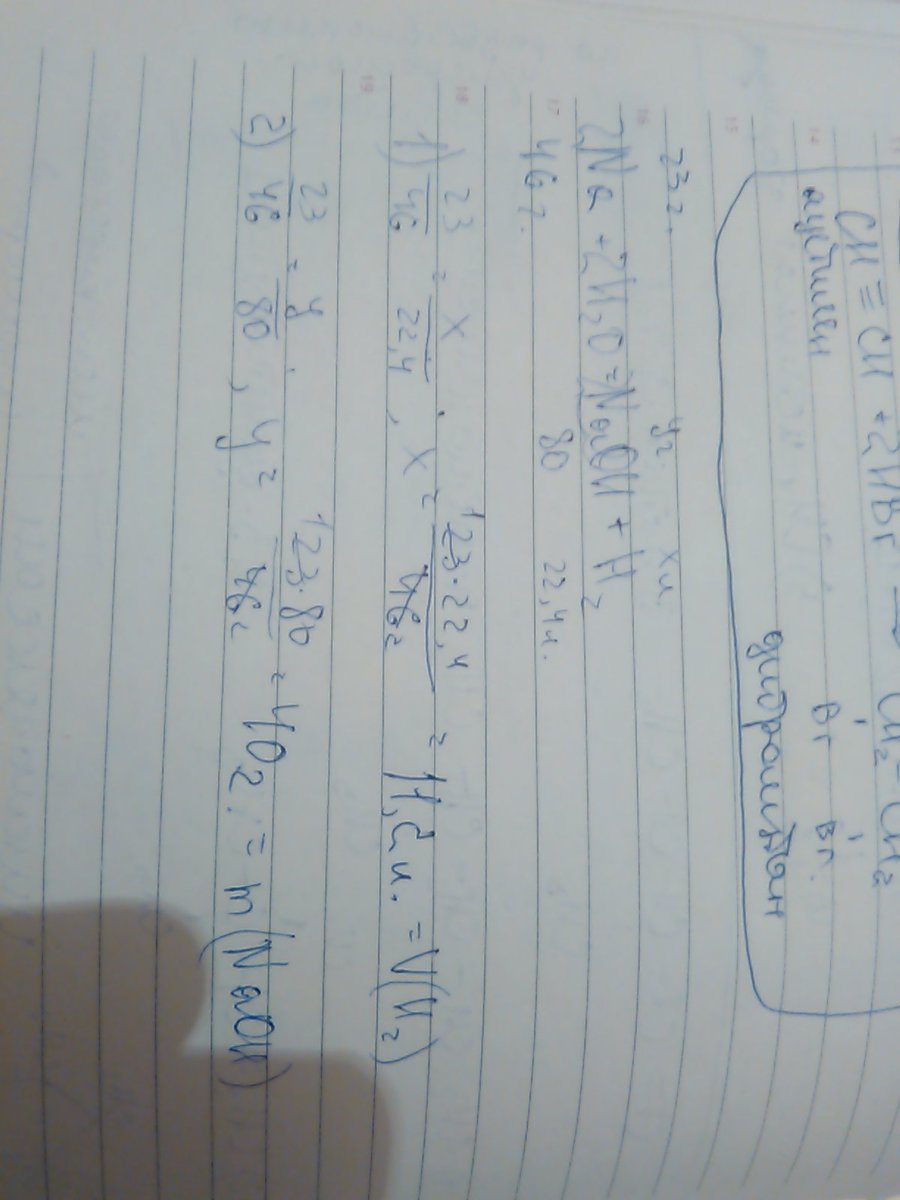 CH ≡ CH + 2HBr → CH₂-CH₂
ацетилен Br Br.
дибромэтан
23г. уг. хл.
2Na + 2H₂O = NaOH + H₂
46г. 80 22,4л.
1) 23/46 = x/22,4 , x = 23·22,4/46₂ = 11,2л. = V(H₂)
2) 23/46 = y/80 , y = 23·80/46₂ = 40г. = m(NaOH)